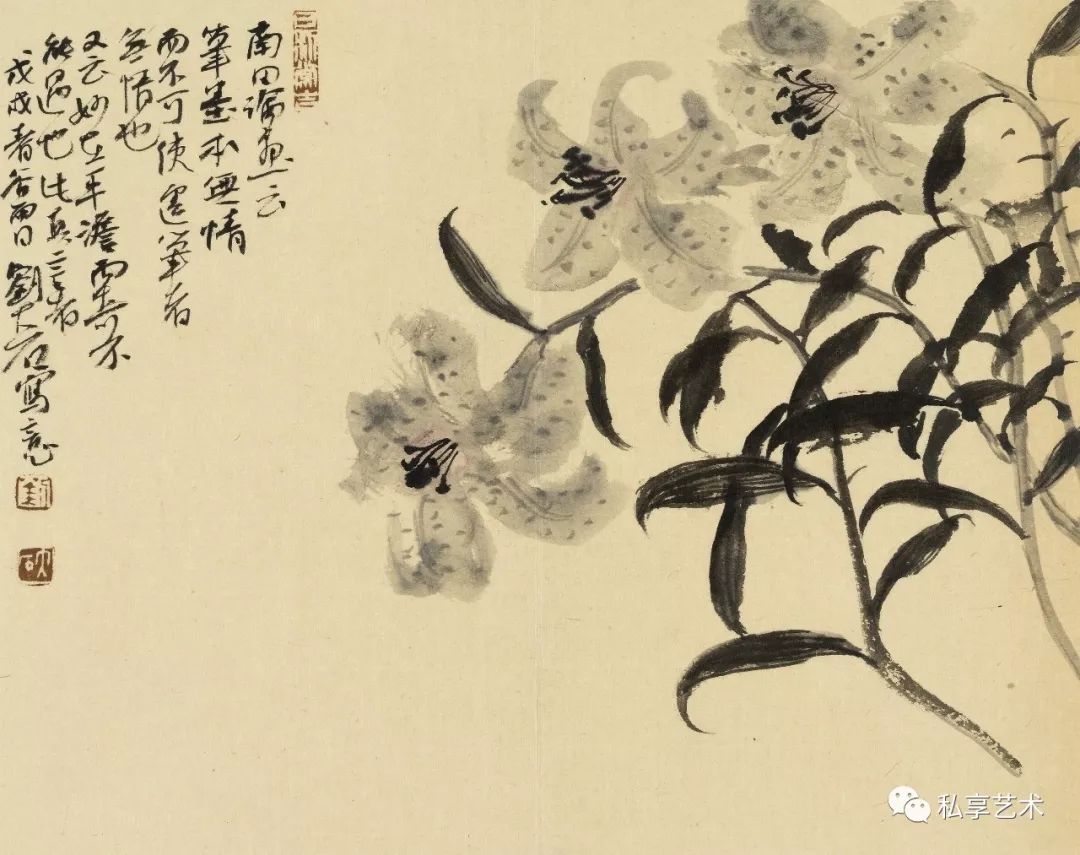 南田論畫云
筆墨本無情
而不可使運筆者
無情也
又云妙在平澹而奇不
能過也此真
戊戌春谷雨日劉大石寫意
劉
大石
私享艺术